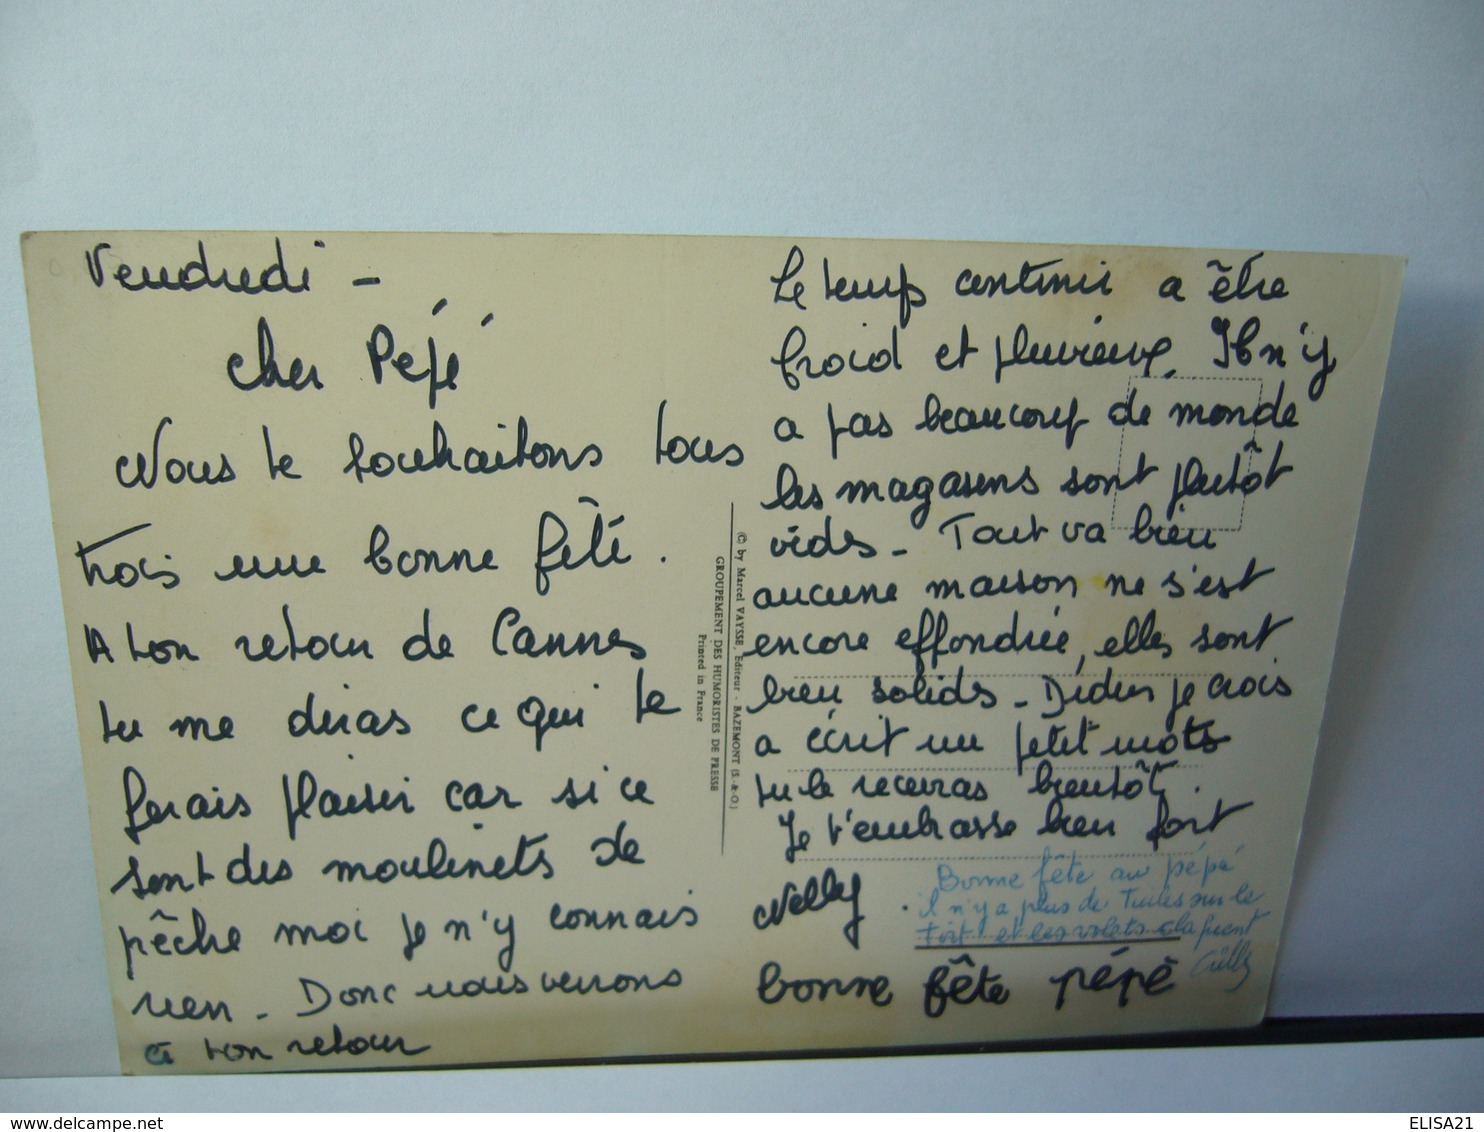 Vendredi -
cher Pépé
Nous te souhaitons tous
trois une bonne fête.
A ton retour de Cannes
tu me diras ce qui te
ferais plaisir car si ce
sont des moulinets de
pêche moi je n'y connais
rien. Donc nous verrons
a ton retour
(C) by Marcel VAYSSE, Editeur - BAZEMONT (S.-&-O.)
GROUPEMENT DES HUMORISTES DE PRESSE
Printed in France
Le temps continu a être
froid et pluvieux. Il n'y
a pas beaucoup de monde
les magasins sont plutôt
vides - Tout va bien
aucune maison ne s'est
encore effondrée, elles sont
bien solides - Didier je crois
a écrit un petit mots
tu le recevras bientôt.
Je t'embrasse bien fort
Nelly.
Bonne fête au pépé
il n'y a plus de Tuiles sur le
Toit et les volets
bonne fête pépé
ELISA21
delcampe.net